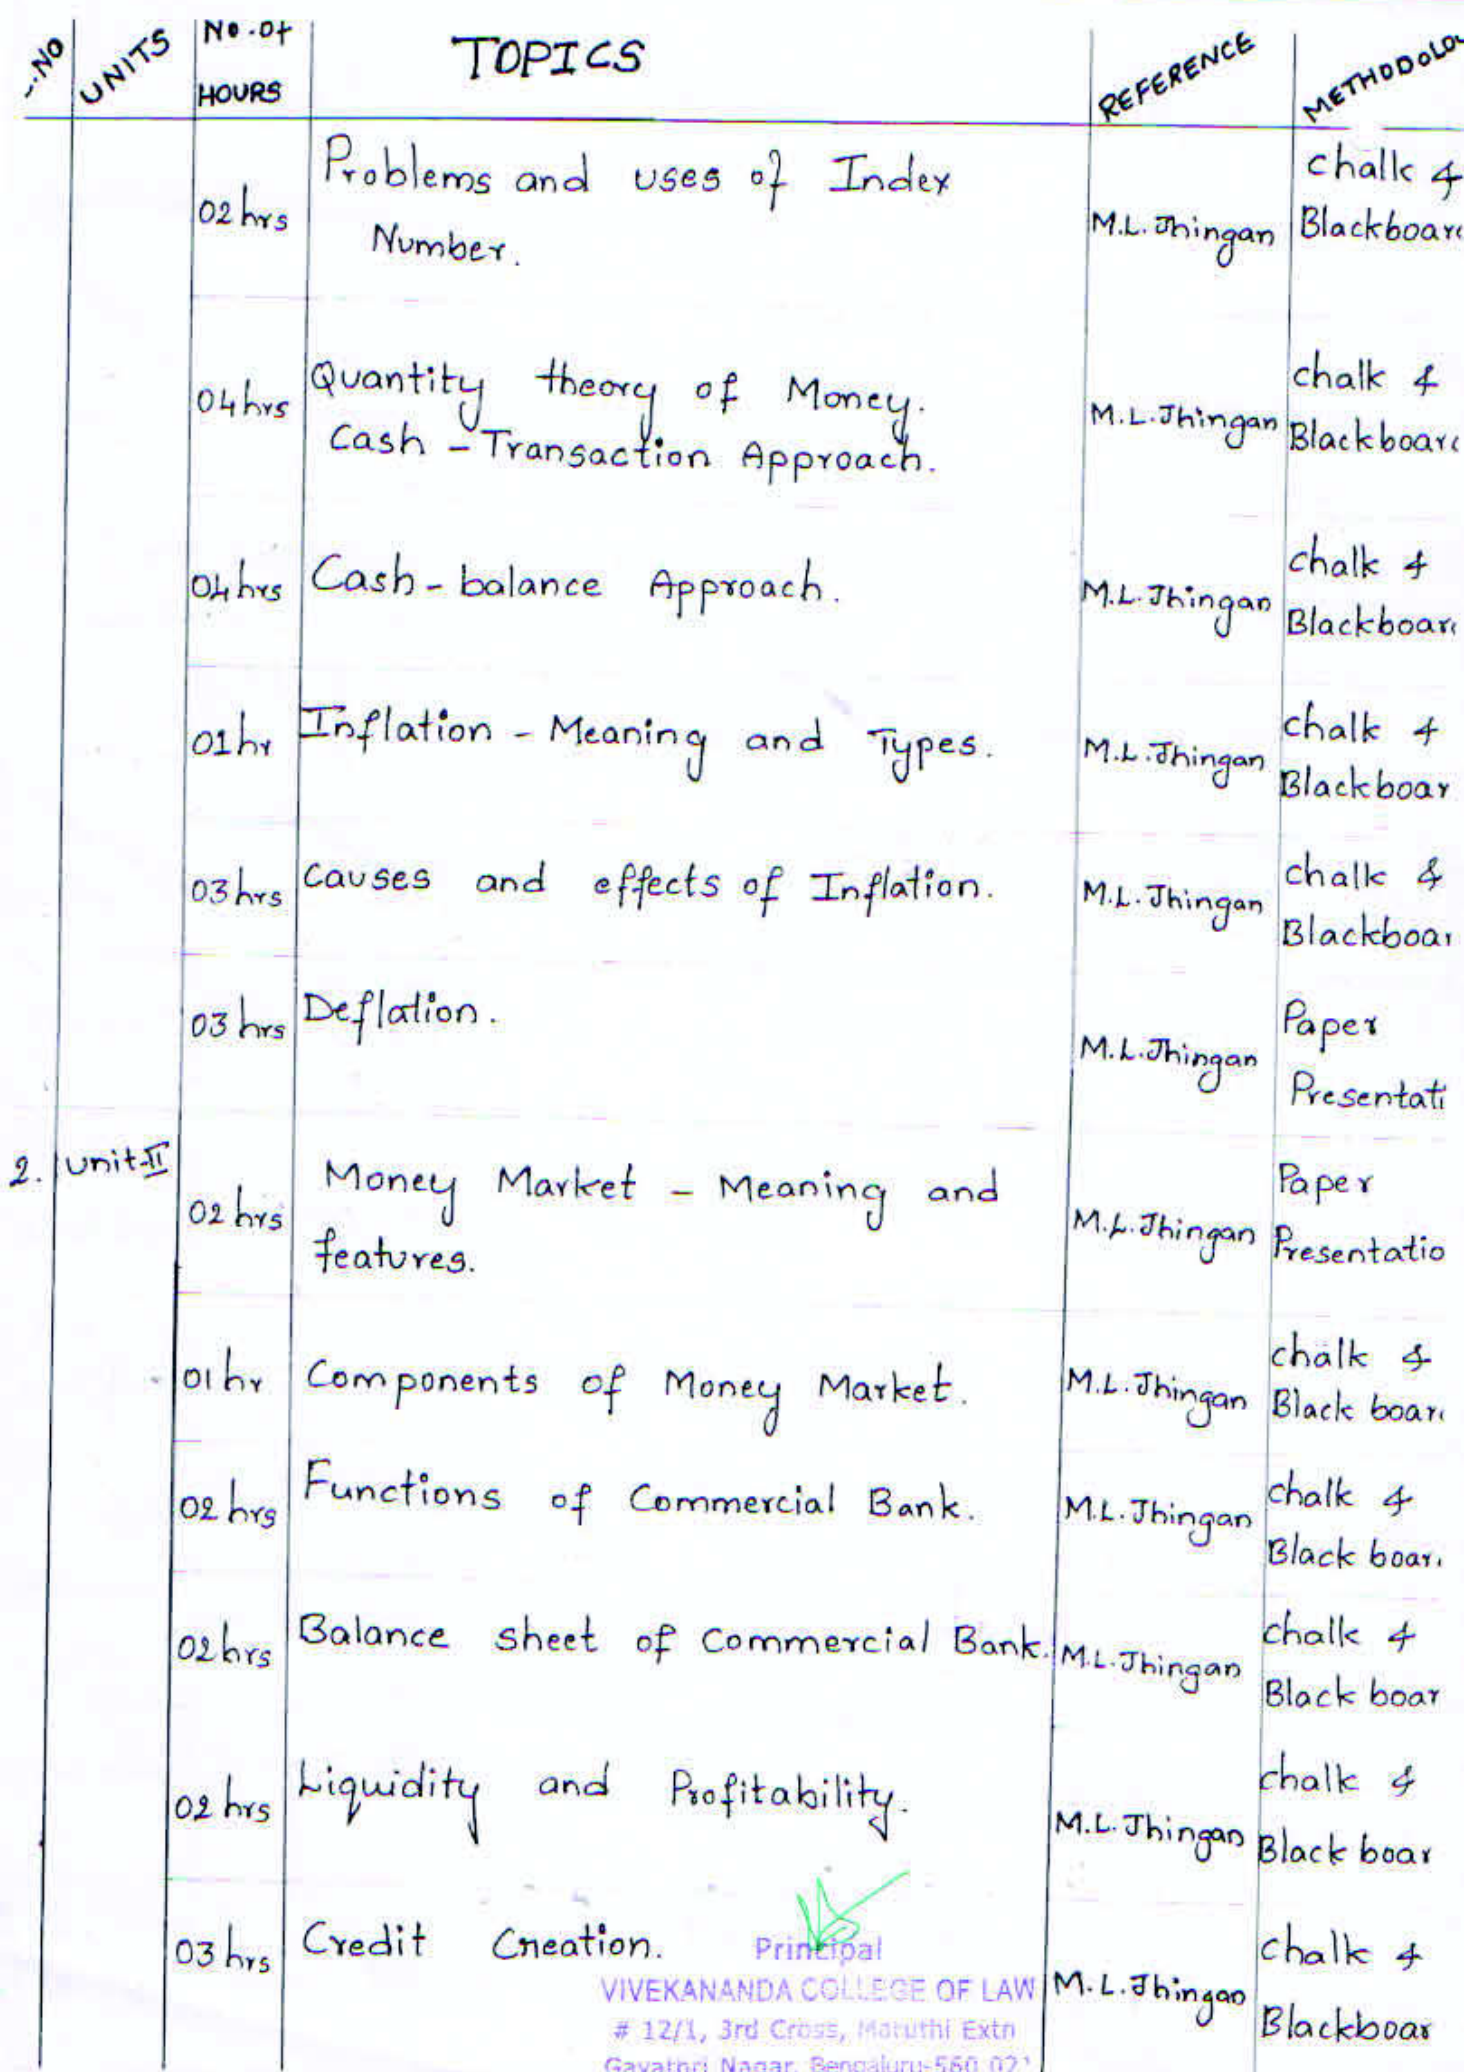 NO UNITS No. of HOURS TOPICS REFERENCE METHODOLO
02 hrs Problems and uses of Index Number. M.L. Jhingan chalk & Blackboar
04 hrs Quantity theory of Money. M.L. Jhingan chalk &
Cash - Transaction Approach. Blackboar
04 hrs Cash - balance Approach. M.L. Jhingan chalk & Blackboar
01 hr Inflation - Meaning and Types. M.L. Jhingan chalk & Blackboar
03 hrs causes and effects of Inflation. M.L. Jhingan chalk & Blackboar
03 hrs Deflation. M.L. Jhingan Paper Presentati
2. unit-II 02 hrs Money Market - Meaning and features. M.L. Jhingan Paper Presentatio
01 hr Components of Money Market. M.L. Jhingan chalk & Black boar
02 hrs Functions of Commercial Bank. M.L. Jhingan chalk & Black boar
02 hrs Balance sheet of Commercial Bank. M.L. Jhingan chalk & Black boar
02 hrs Liquidity and Profitability. M.L. Jhingan chalk & Black boar
03 hrs Credit Creation. M.L. Jhingan chalk & Blackboar
Principal
VIVEKANANDA COLLEGE OF LAW
# 12/1, 3rd Cross, Maruthi Extn
Gayathri Nagar, Bengaluru-560 021